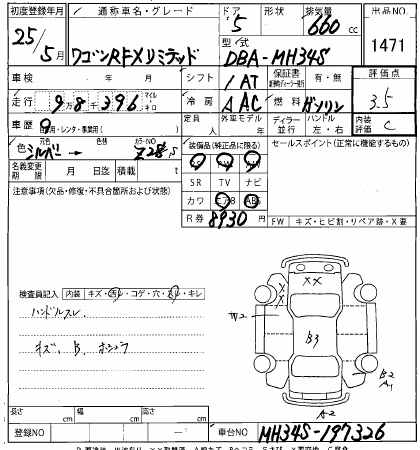 初度登録年月 通称車名・グレード ドア 形状 排気量 出品NO
25年/5月 ワゴンRFXリミテッド 5 660cc 1471
型式 DBA-MH34S
車検 年 月 シフト IAT 保証書 有・無 評価点
走行 9万8千396 マイル キロ 冷房 AAC 燃料 ガソリン 3.5
車歴 自家用・レンタ・事業用( ) 定員 人 外車モデル 年 ディーラー 並行 ハンドル 左・右 内装評価 C
色 元色 シルバー→ 色替 カラーNO Z2S 装備品(純正品に限る) セールスポイント(正常に機能するもの)
名義変更期限 月 日迄 積載 t SR TV ナビ
注意事項(欠品・修復・不具合箇所および状態) カワ エアB ABS
R券 8930 FW キズ・ヒビ割・リペア跡・X要
検査員記入 内装 キズ・汚レ・コゲ・穴・スレ・キレ
ハンドルスレ
キズ、B、
XX
X
X
W2
B3
B2
A1
A2
長さ cm 幅 cm 高さ cm
登録NO 車台NO MH34S-197326